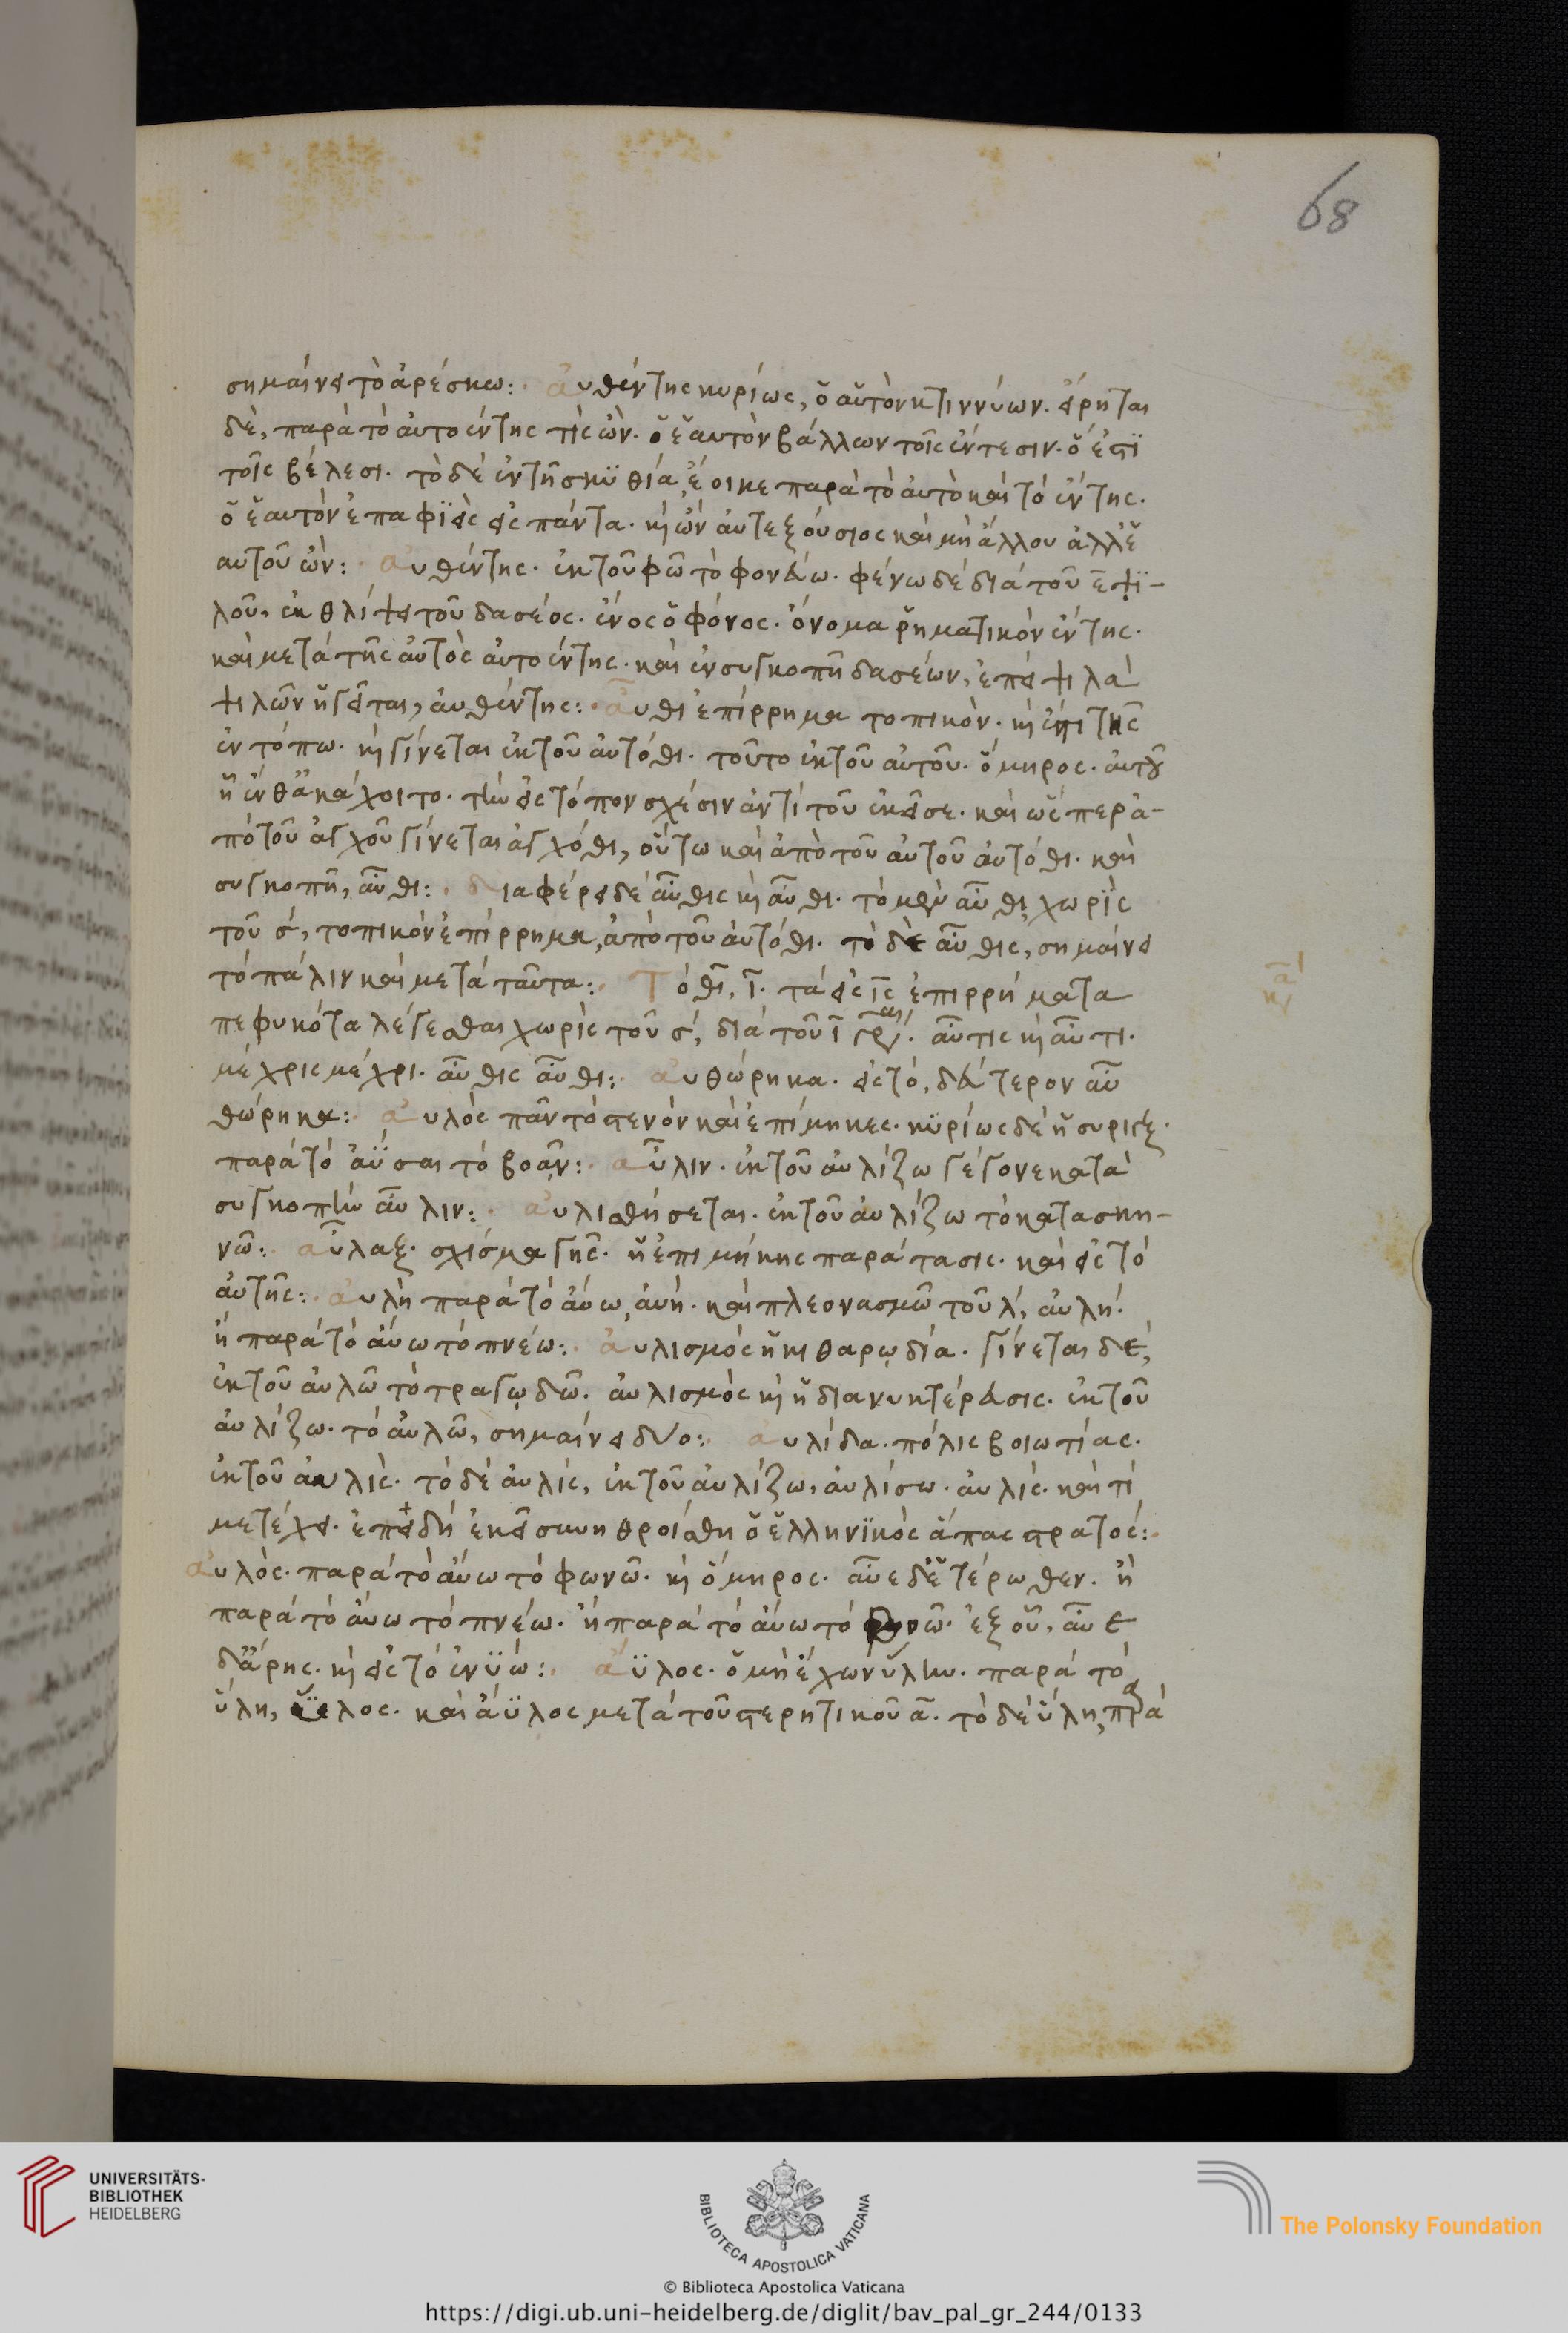 68
σημαίνει τὸ ἀρέσκω: αὐθέντης κυρίως, ὁ αὑτὸν κτιννύων. εἴρηται
δὲ, παρὰ τὸ αὐτοέντης τὶς ὤν. ὁ ἑαυτὸν βάλλων τοῖς ἔντεσιν. ὅ ἐστϊ
τοῖς βέλεσι. τὸ δὲ ἐν τῆ σκϋθία, ἔοικε παρὰ τὸ αὐτὸ καὶ τὸ ἔντης.
ὁ ἑαυτὸν ἐπαφϊεὶς εἰς πάντα. κὶ ὢν αὐτεξούσιος καὶ μὴ ἄλλου ἀλλ' ἑ
αυτοῦ ὤν: Αὐθέντης. ἐκ τοῦ φῶ τὸ φονεύω. φένω δὲ διὰ τοῦ ε ψϊ-
λοῦ, ἐκθλίψει τοῦ δασέος. ἔνος ὁ φόνος. ὄνομα ῥηματικὸν ἔντης.
καὶ μετὰ τῆς αὐτὸς αὐτοέντης. καὶ ἐν συγκοπῆ δασέων, ἐπεὶ ψιλὰ
ψιλῶν ἡγεῖται, αὐθέντης: αὖθι ἐπίρρημα τοπικὸν. κὶ ἐπὶ τῆς
ἐν τόπω. κὶ γίνεται ἐκ τοῦ αὐτόθι. τοῦτο ἐκ τοῦ αὐτοῦ. ὅμηρος. αὐτοῦ
ἢ ἔνθα κάχοιτο. τὴν εἰς τόπον σχέσιν ἀντὶ τοῦ ἐκεῖσε. καὶ ὥσπερ ἀ-
πὸ τοῦ ἀγχοῦ γίνεται ἀγχόθι, οὕτω καὶ ἀπὸ τοῦ αὐτοῦ αὐτόθι. καὶ
συγκοπῆ, αὖθι: Διαφέρει δὲ αὖθις κὶ αὖθι. τὸ μὲν αὖθι, χωρϊς
τοῦ σ, τοπικὸν ἐπίρρημα, ἀπὸ τοῦ αὐτόθι. τὸ δὲ αὖθις, σημαίνει
τὸ πάλιν καὶ μετὰ ταῦτα: Τὸ θι, ι. τὰ εἰς ις ἐπιρρήματα
πεφυκότα λέγεσθαι χωρὶς τοῦ σ, διὰ τοῦ ι γράφεται. αὖτις κὶ αὖτι.
μέχρις μέχρι. αὖθις αὖθι: αυθώρηκα. εἰς τὸ, δεύτερον αὖ
θώρηκα: αὐλὸς πᾶν τὸ στενὸν καὶ ἐπίμηκες. κϋρίως δὲ ἡ συριγξ.
παρὰ τὸ ἀΰσαι τὸ βοᾶν: αὖλιν. ἐκ τοῦ αὐλίζω γέγονε κατὰ
συγκοπὴν αὖλιν: αὐλισθήσεται. ἐκ τοῦ αὐλίζω τὸ κατασκη-
νῶ: αὖλαξ. σχίσμα γῆς. ἡ ἐπιμήκης παράτασις. καὶ εἰς τὸ
αὐτῆς: αὐλὴ παρὰ τὸ αὔω, αὐή. καὶ πλεονασμῶ τοῦ λ, αὐλή.
ἢ παρὰ τὸ αὔω τὸ πνέω: αὐλισμὸς ἡ κιθαρῳδία. γίνεται δὲ,
ἐκ τοῦ αὐλῶ τὸ τραγῳδῶ. αὐλισμὸς κὶ ἡ διανυκτέρευσις. ἐκ τοῦ
αὐλίζω. τὸ αὐλῶ, σημαίνει δύο: αυλίδα. πόλις βοιωτίας.
ἐκ τοῦ αὐλίς. τὸ δὲ αὐλὶς, ἐκ τοῦ αὐλίζω, αὐλίσω. αὐλίς. καὶ τί
μετέχει. ἐπειδὴ ἐκεῖ συνηθροίσθη ὁ ἑλληνϊκὸς ἅπας στρατός:
αὐλὸς. παρὰ τὸ αὔω τὸ φωνῶ. κὶ ὅμηρος. αὖε δ' ἑτέρωθεν. ἢ
παρὰ τὸ αὔω τὸ πνέω. ἢ παρὰ τὸ αὔω τὸ φωνῶ. ἐξ οὗ, αὖε
δ' ἄρης. κὶ εἰς τὸ ἐνϋώ: ἄϋλος. ὁ μὴ ἔχων ὕλην. παρὰ τὸ
ὕλη, ϋλος. καὶ ἄϋλος μετὰ τοῦ στερητικοῦ α. τὸ δὲ ὕλη, παρὰ
UNIVERSITÄTS-
BIBLIOTHEK
HEIDELBERG
BIBLIOTECA APOSTOLICA VATICANA
The Polonsky Foundation
© Biblioteca Apostolica Vaticana
https://digi.ub.uni-heidelberg.de/diglit/bav_pal_gr_244/0133